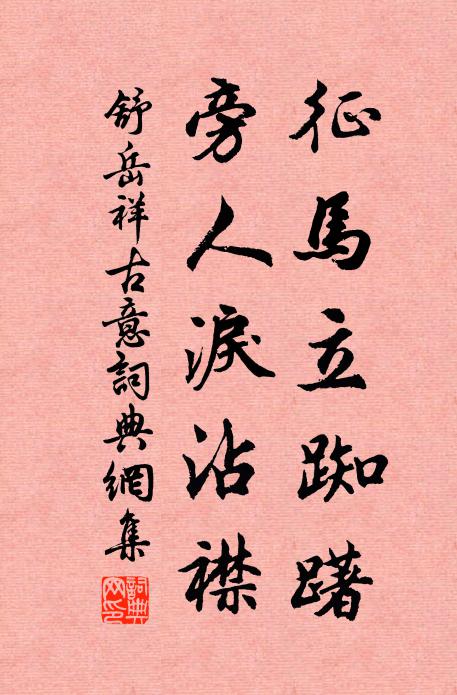 征馬立踟躇
旁人淚沾襟
舒岳祥古意詞典網集
詞典
网印